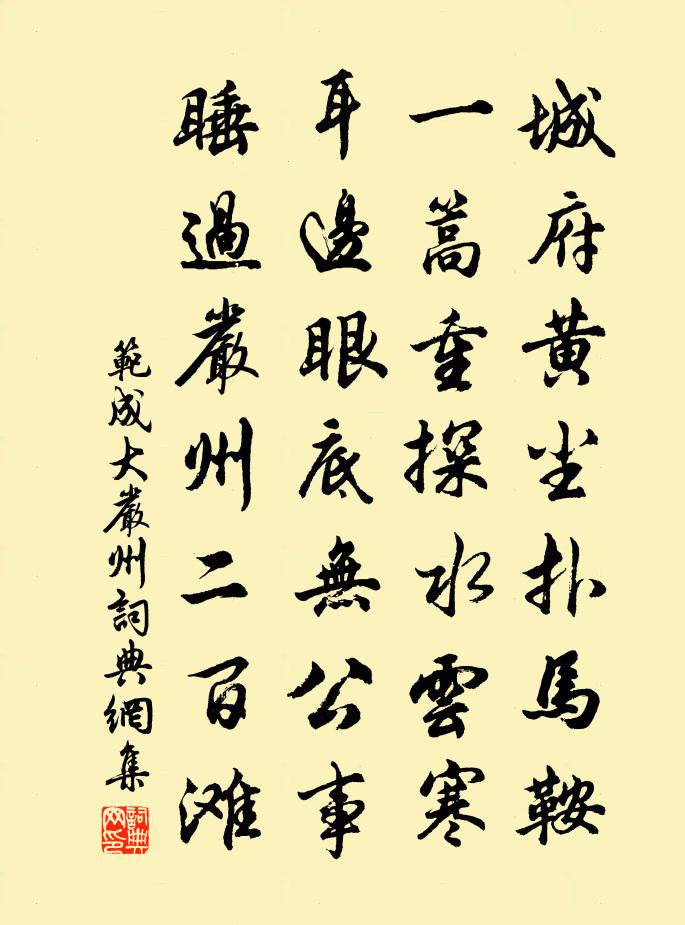 城府黄尘扑馬鞍
一蒿重探水雲寒
耳邊眼底無公事
睡過嚴州二百滩
範成大嚴州詞典網集
詞典网印